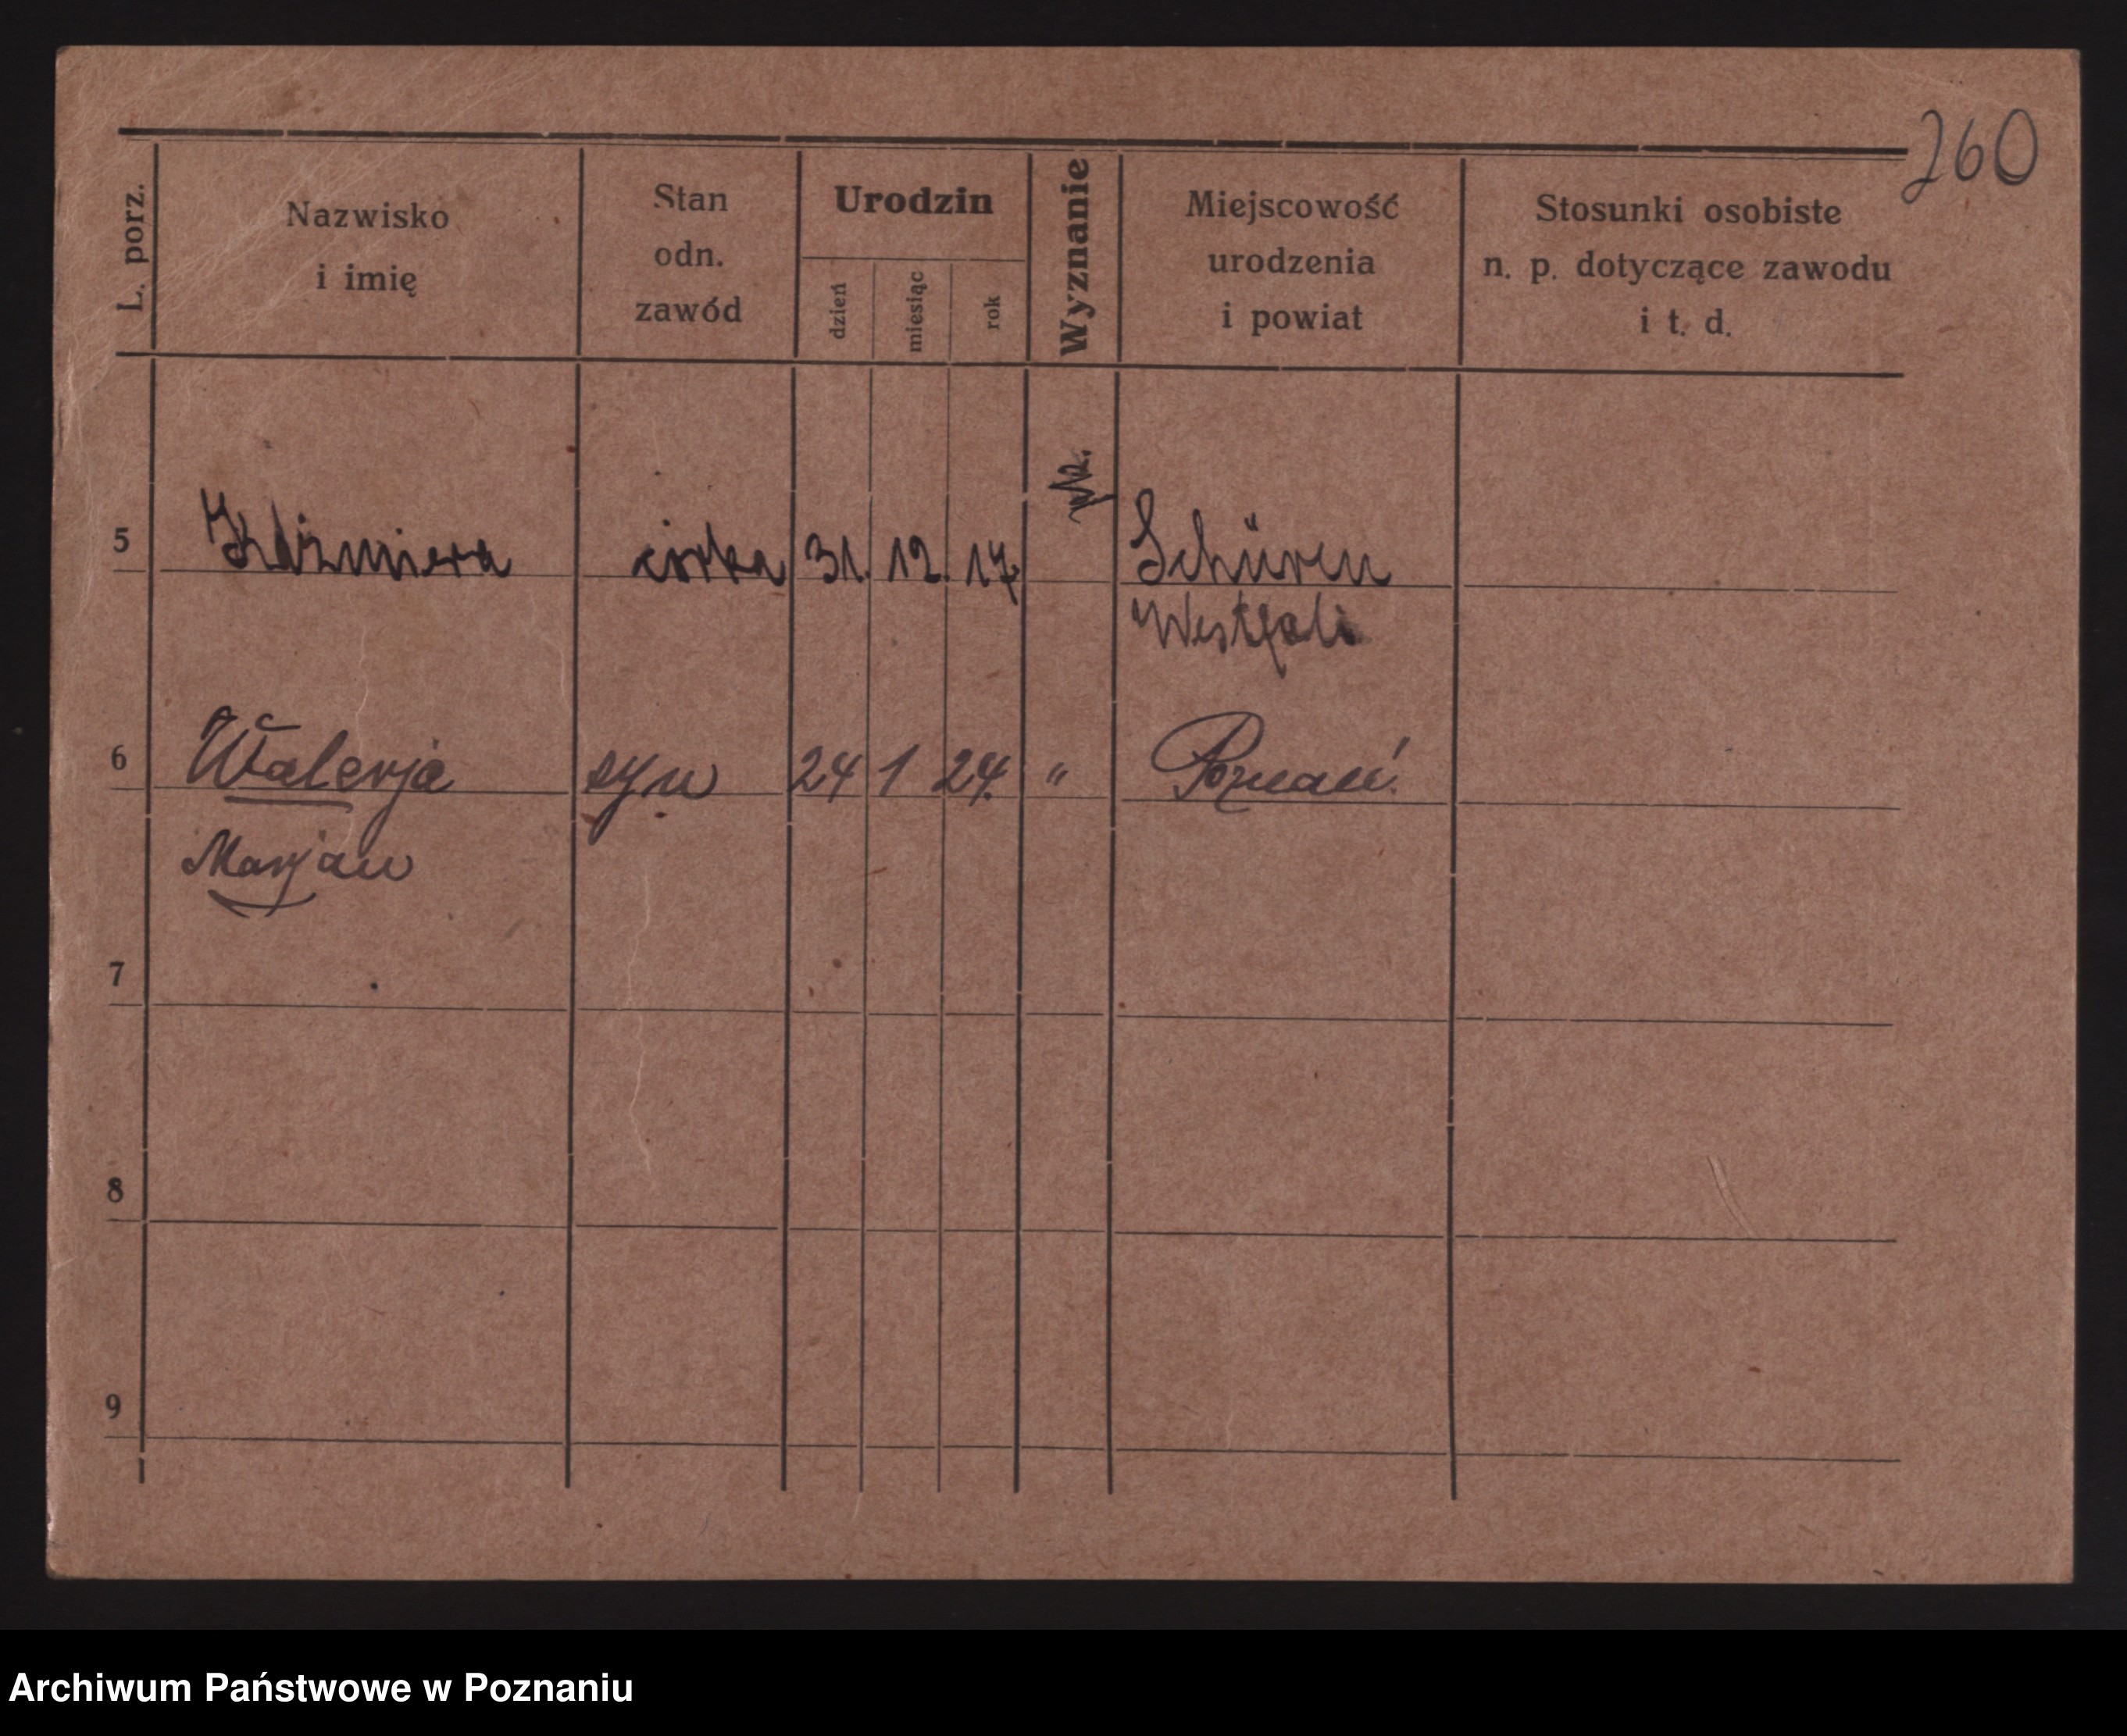 260
L. porz.
Nazwisko
i imię
Stan
odn.
zawód
Urodzin
dzień
miesiąc
rok
Wyznanie
Miejscowość
urodzenia
i powiat
Stosunki osobiste
n. p. dotyczące zawodu
i t. d.
5 Kaźmiera córka 31. 12. 17. Schüren
Westfali
6 Walerja syn 24 1 24. " Poznań.
Marjan
7
8
9
Archiwum Państwowe w Poznaniu